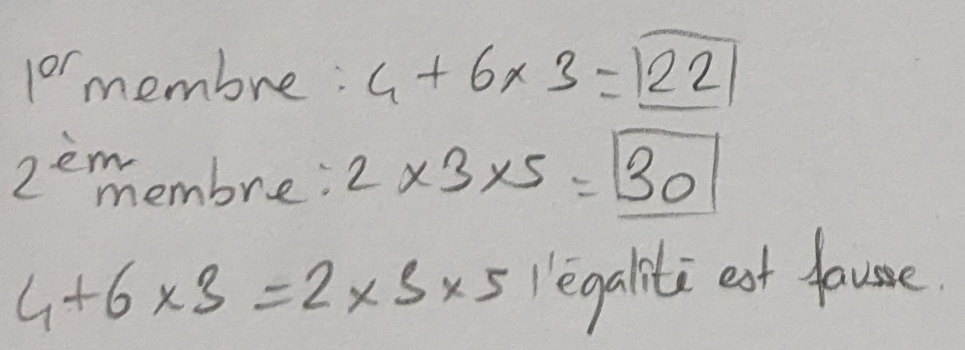 1er membre : 4 + 6 x 3 = 22
2èm membre : 2 x 3 x 5 = 30
4 + 6 x 3 = 2 x 3 x 5 l'égalité est fausse.